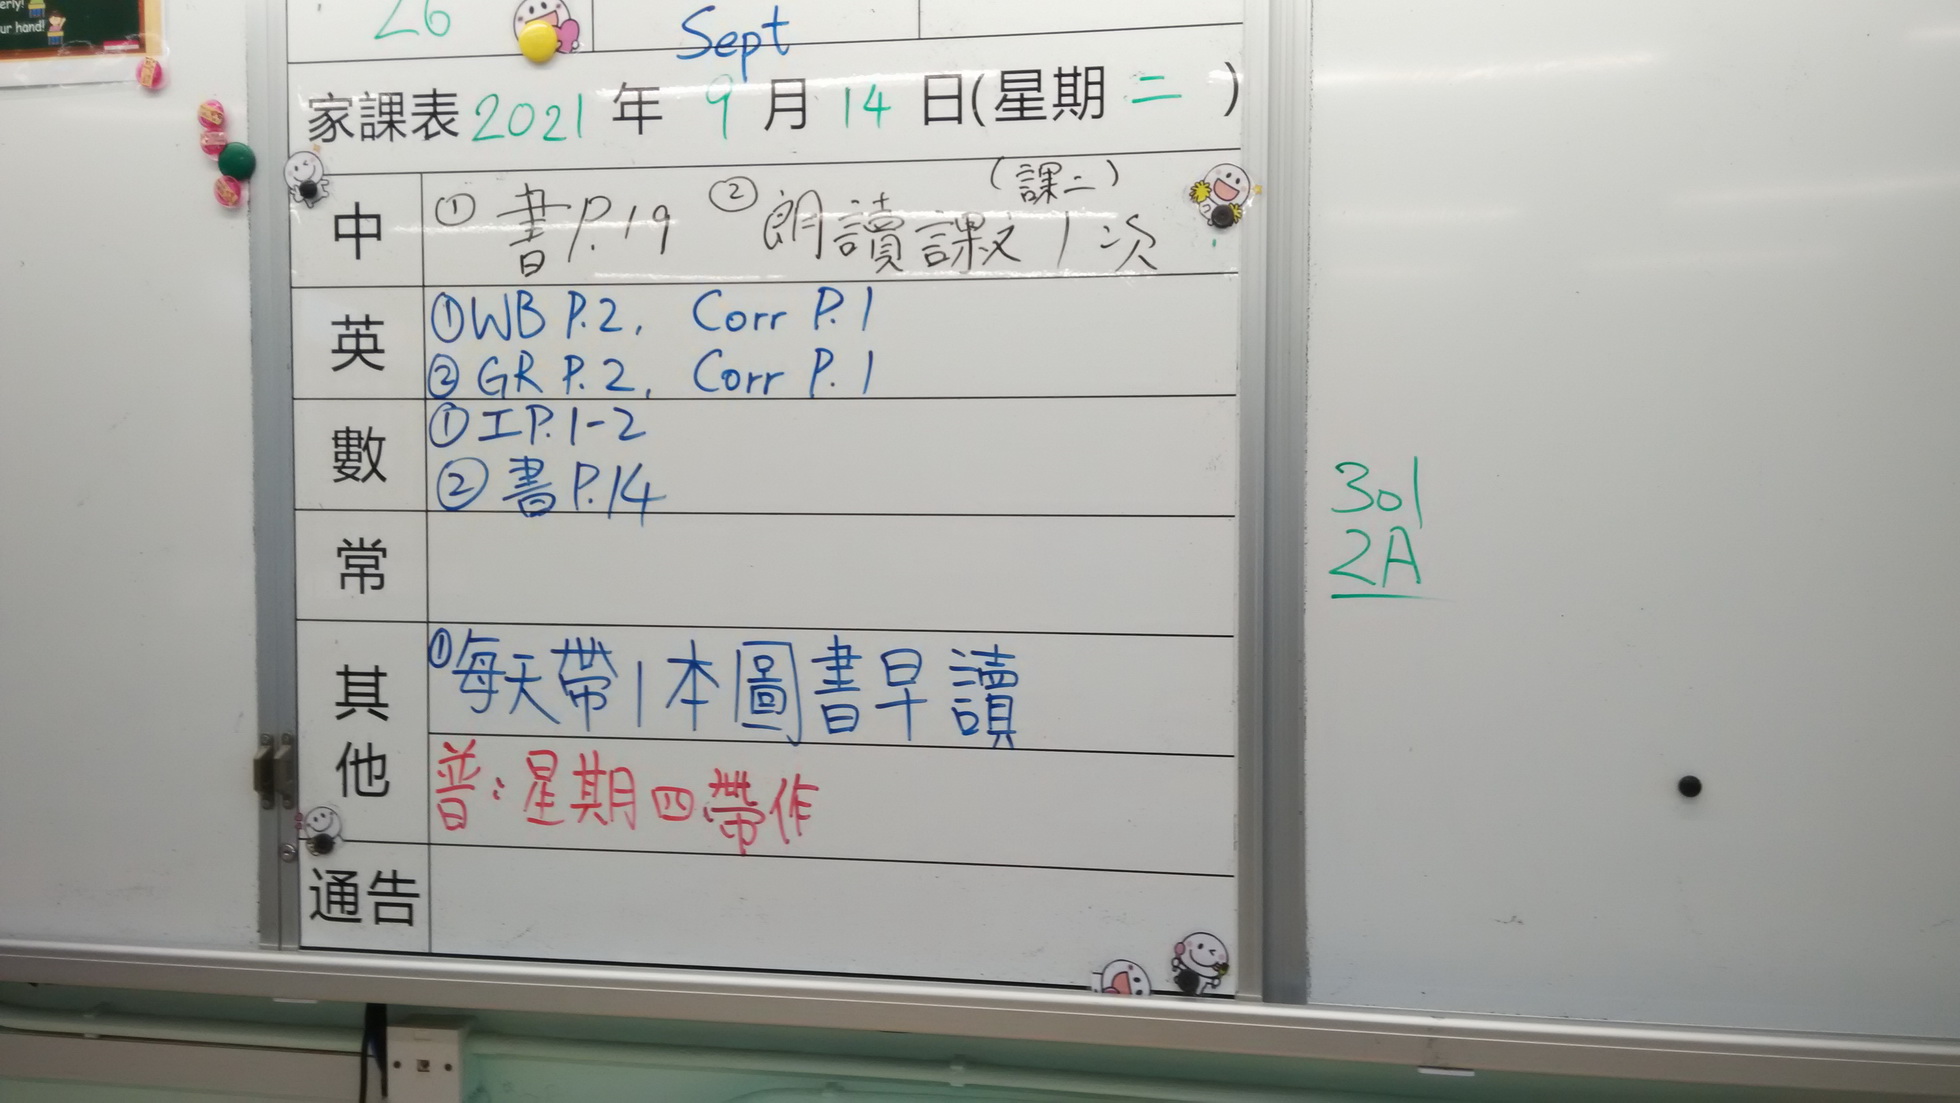 erly!
ur hand!
26
Sept
家課表 2021 年 9 月 14 日(星期 二 )
中 ① 書P.19 ② 朗讀課文1次 (課二)
英 ①WB P.2, Corr P.1
② GR P.2, Corr P.1
數 ①工P.1-2
② 書P.14
常
其他 ①每天帶1本圖書早讀
普:星期四帶作
通告
301
2A